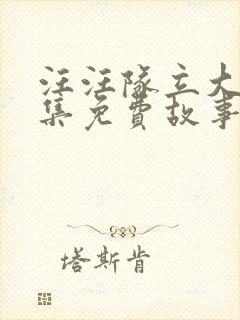 汪汪队立大
集免费故事
塔斯肯